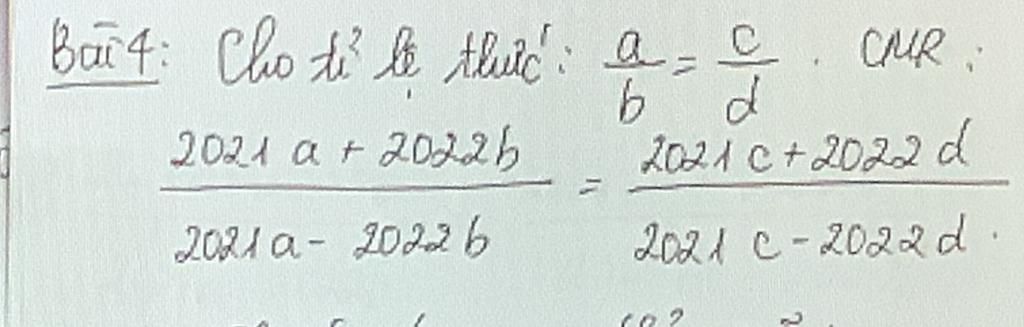 Bài 4: Cho tỉ lệ thức: a/b = c/d. CMR:
(2021a + 2022b)/(2021a - 2022b) = (2021c + 2022d)/(2021c - 2022d).